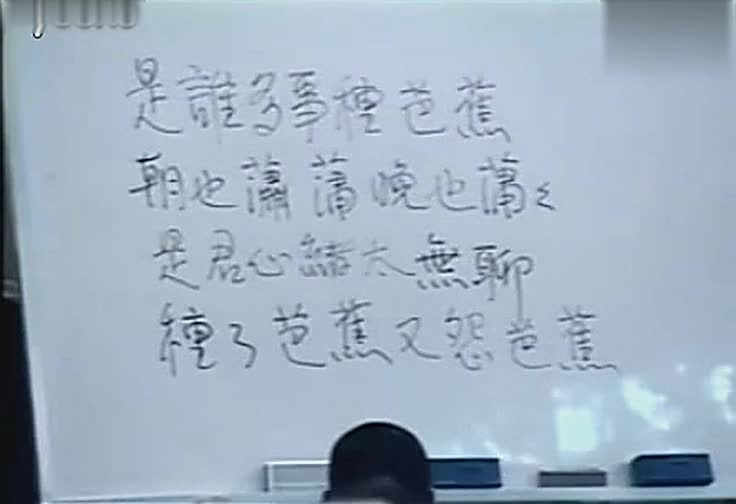 是誰多事種芭蕉
朝也蕭蕭晚也蕭々
是君心緒太無聊
種了芭蕉又怨芭蕉